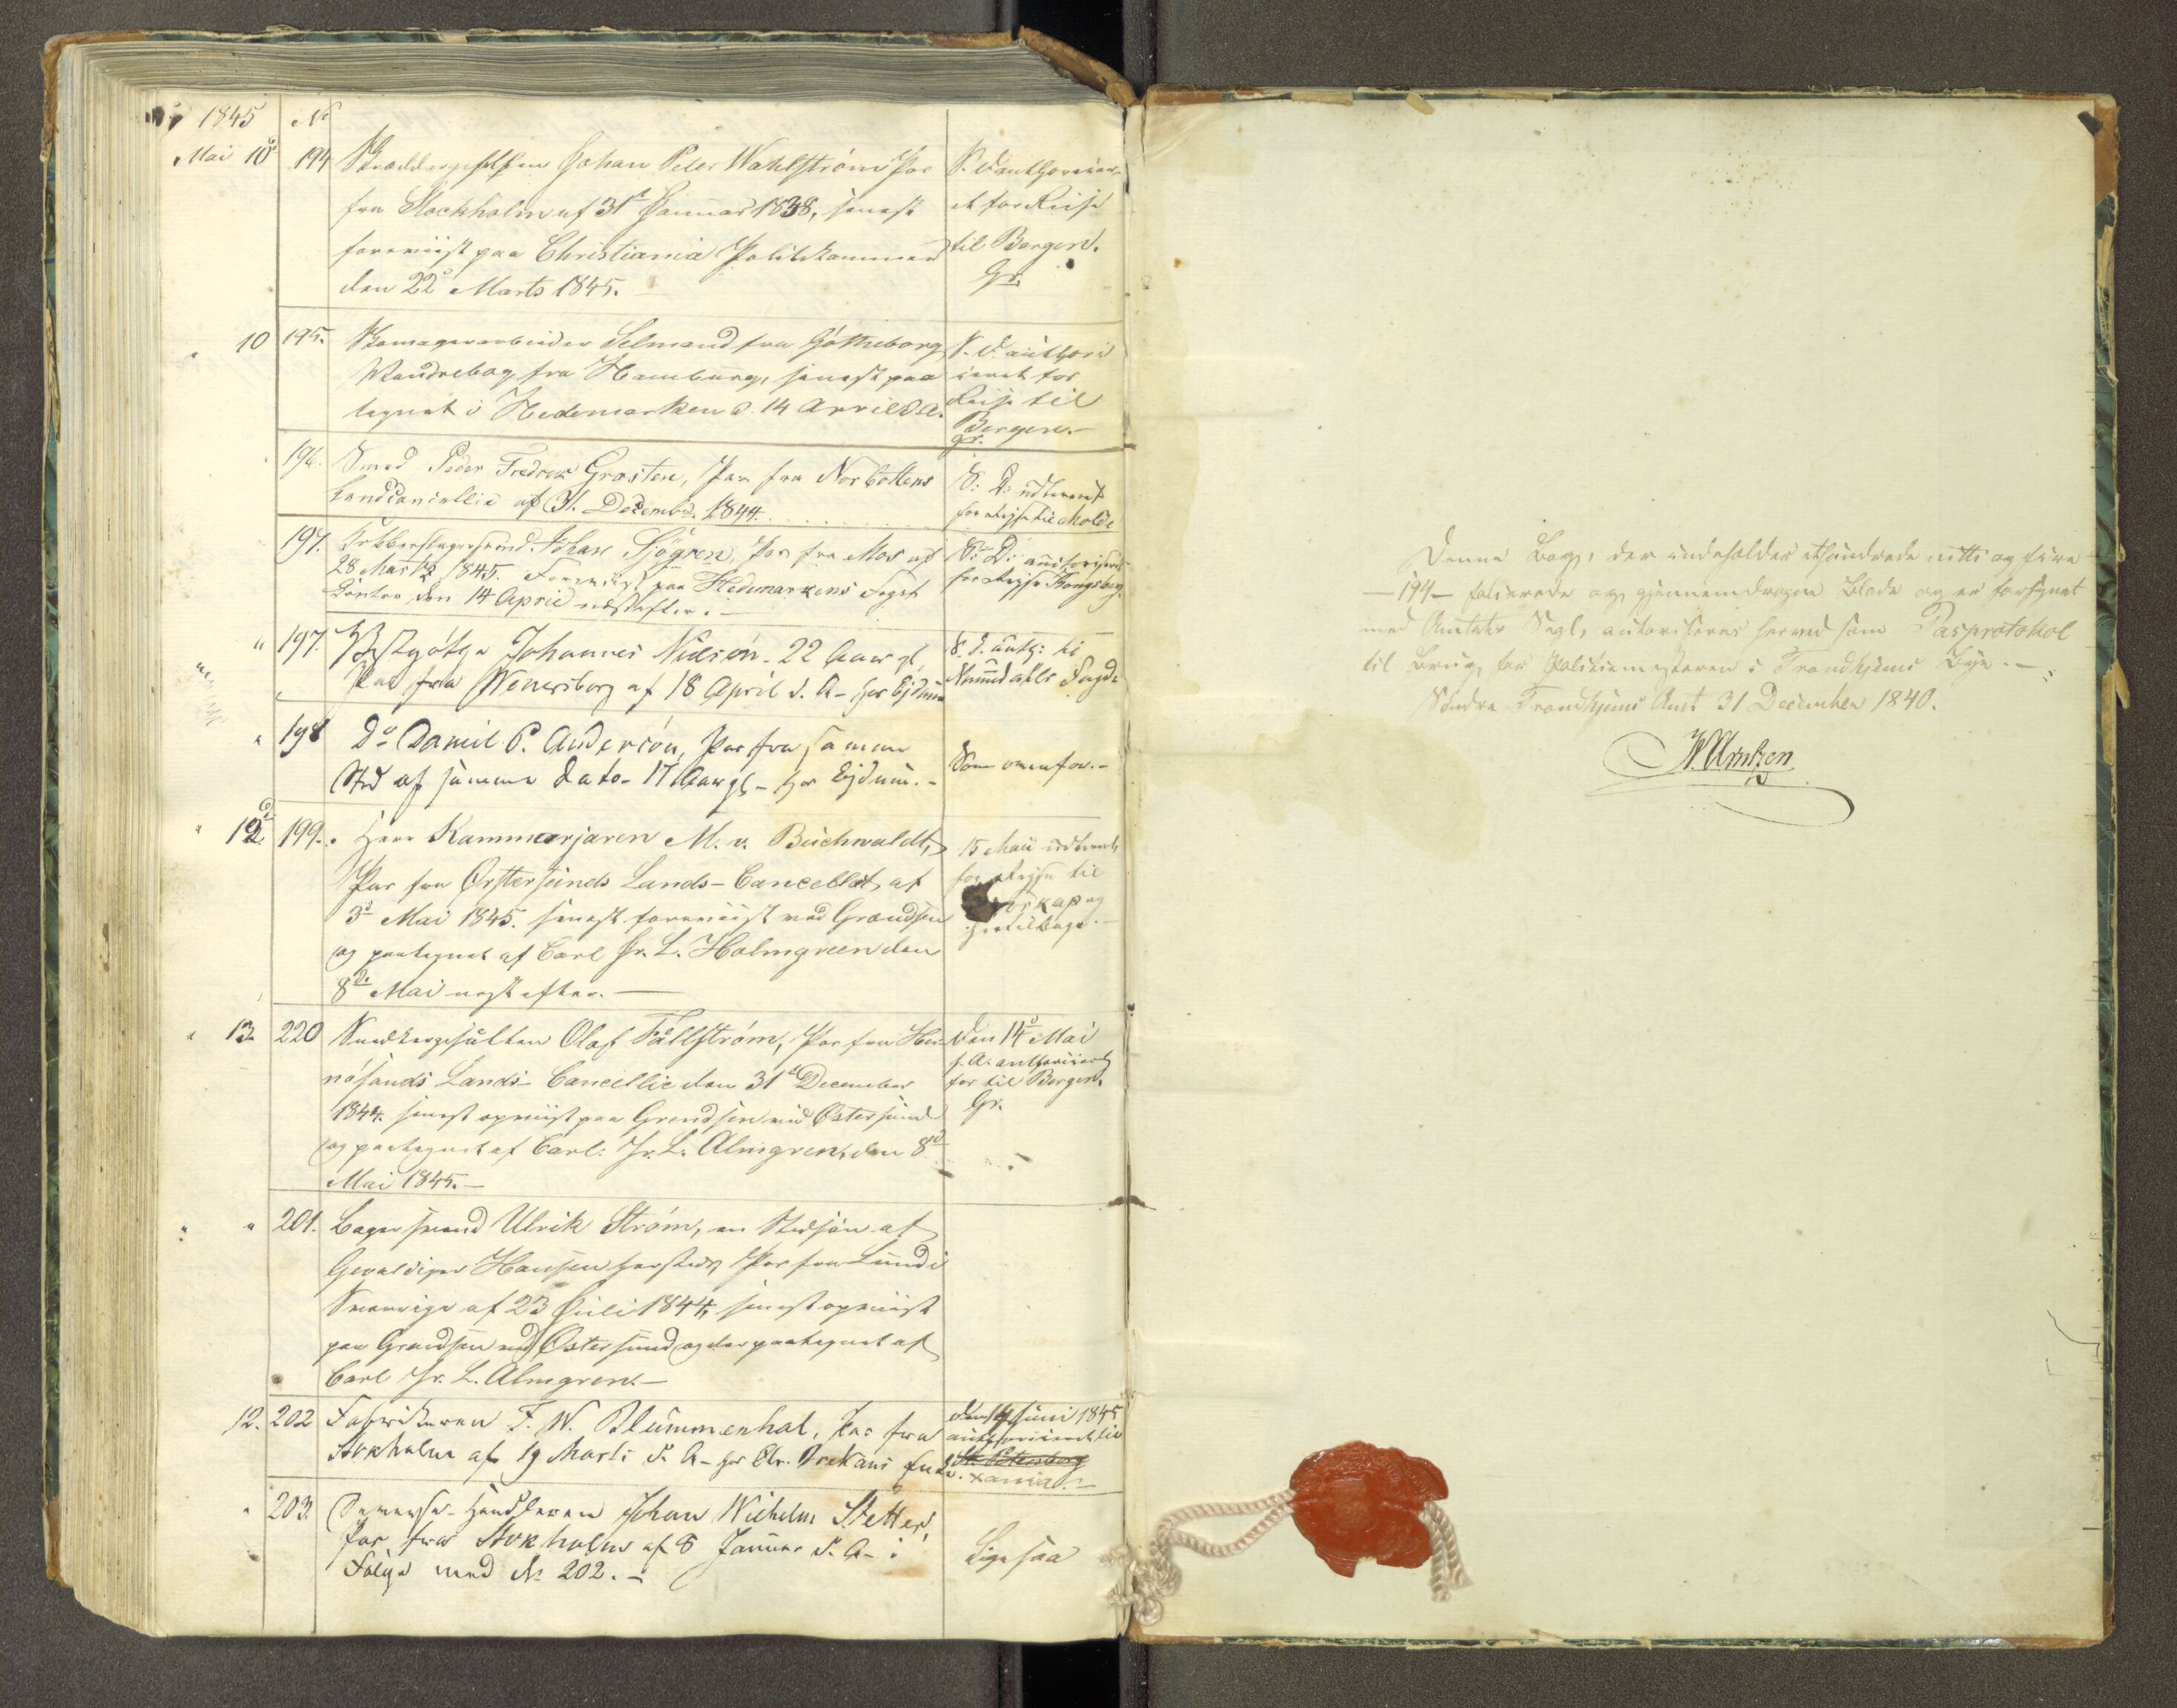 1845 No
Mai 10d 194 Skræddergesellen Johan Peter Wahlstrøm Pas
fra Stockholm af 31t Januar 1838, senest
foreviist paa Christiania Politikammer
den 22d Marts 1845.
S. D. authoriser-
et for Reise
til Bergen.
Gr.
" 10 195. Skomagerarbeider Selmand fra Gøtheborg
Wandrebog fra Hamburg, senest paa
tegnet i Hedemarken d. 14 April d. A.
S. D. authori
seret for
Reise til
Bergen.-
gr.
196. Smed Peder Fredrik Grøsten, Pas fra Norbottens
Landcancellie af 31. Decembr. 1844.
S: D: udleveret
for Reise til Molde
197. Kobberslagersvend Johan Sjögren, Pas fra Mos af
28 Marts 1845. Foreviist paa Hedemarkens Fogd
Contor den 14 April næstefter.-
S: D: authoriseret
for Reise Kongsberg
" 197. Johannes Nilsson - 22 Aar gl,
Pas fra Wenersborg af 18 April d. A - har Ejdum
S. D. auth: til
Numedahls Fogd:
" 198 Do Daniel P. Anderson, Pas fra samme
Sted af samme Dato - 17 Aar gl - har Ejdum.-
Som ovenfor.-
" 12d. 199. Herr Kammerjaren M. v. Buchwaldt,
Pas fra Østersunds Lands-Cancellie af
3d Mai 1845. senest foreviist ved Grændsen
og paategnet af Carl Fr. L. Holmgreen den
8de Mai næst efter.-
15 Mai udleveret
for Reise til
og
her tilbage.-
" 13 220 Snedkergesällen Olof Fällstrøm, Pas fra Her-
nösands Lands-Cancellie den 31d December
1844. senest opviist paa Grændsen ved Østersund
og paategnet af Carl. Fr. L. Almgren, den 8d
Mai 1845.-
Den 14d Mai
s. A. authoriseret
for til Bergen.
Gr.
" " 201. Bagersvend Ulrik Strøm, en Stedsøn af
Gevaldiger Hansen hersteds, Pas fra Lund i
Sverrige af 23 Juli 1844, senest opviist
paa Grændsen ved Østersund og der paategnet af
Carl Fr. L. Almgren.-
12. 202 Fabrikeuren F. W. Blummenhal, Pas fra
Stokholm af 19 Marts d. A - har
den 14 Juni 1845
authoriseret til
St. Petersborg
Xania.-
" 203. Johan Wilhelm Stetter,
Pas fra Stokholm af 8 Januar d. A - i
Følge med No 202.-
Ligesaa
Denne Bog, der indeholder ethundrede nitti og fire
- 194 - folierede og gjennemdragne Blade og er forsynet
med Amtets Segl, autoriseres herved som Pasprotokol
til Brug for Politiemesteren i Trondhjems Bye.-
Søndre Trondhjems Amt 31 December 1840.
Arntzen